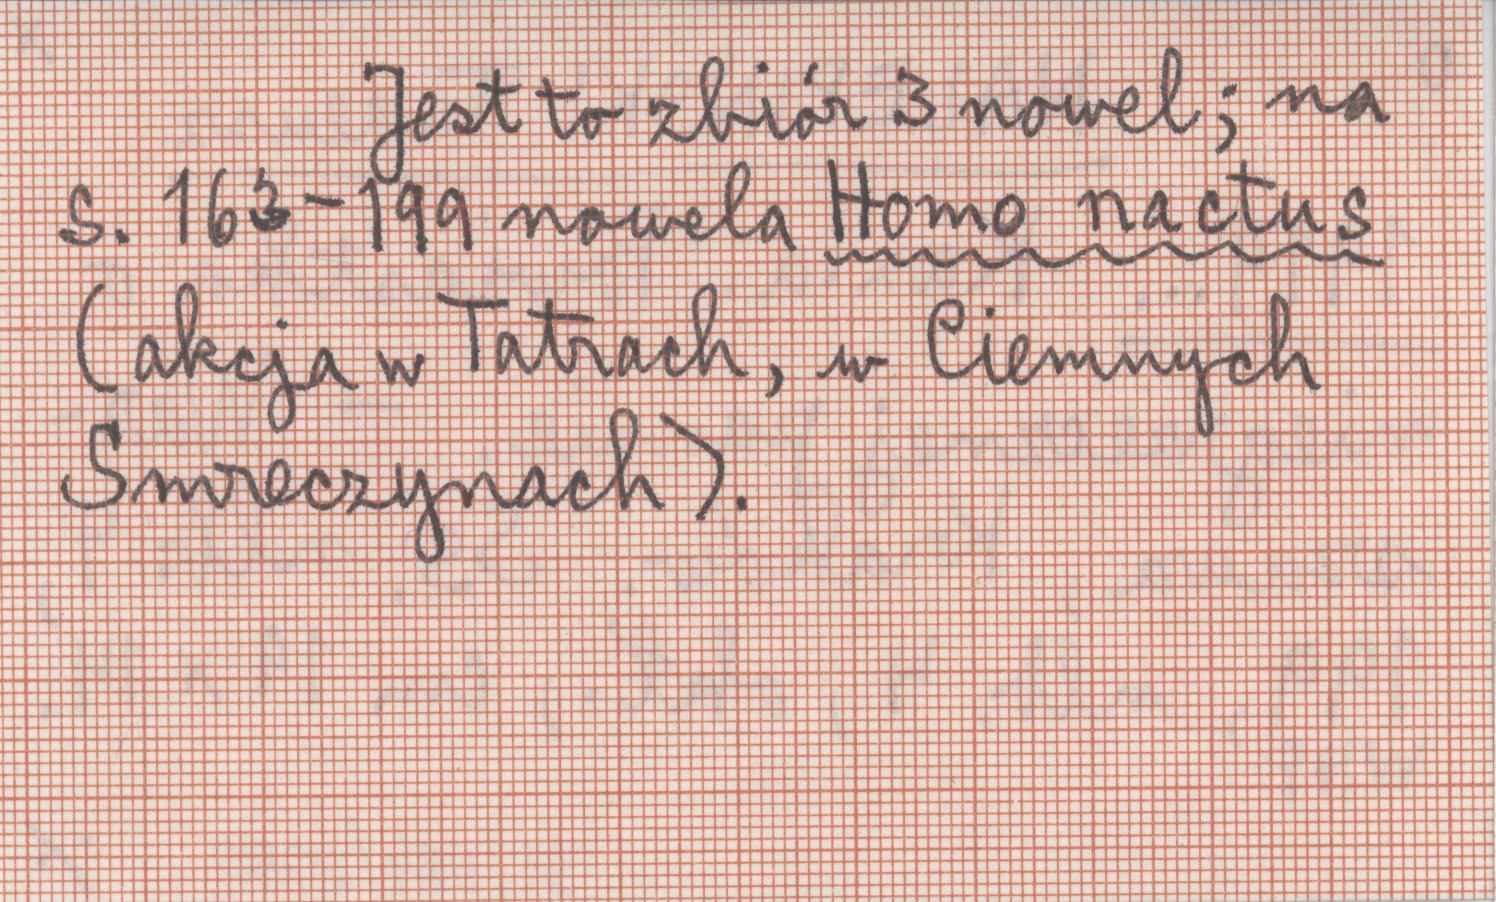 Jest to zbiór 3 nowel; na
s. 163-199 nowela Homo nactus
(akcja w Tatrach, w Ciemnych
Smreczynach).